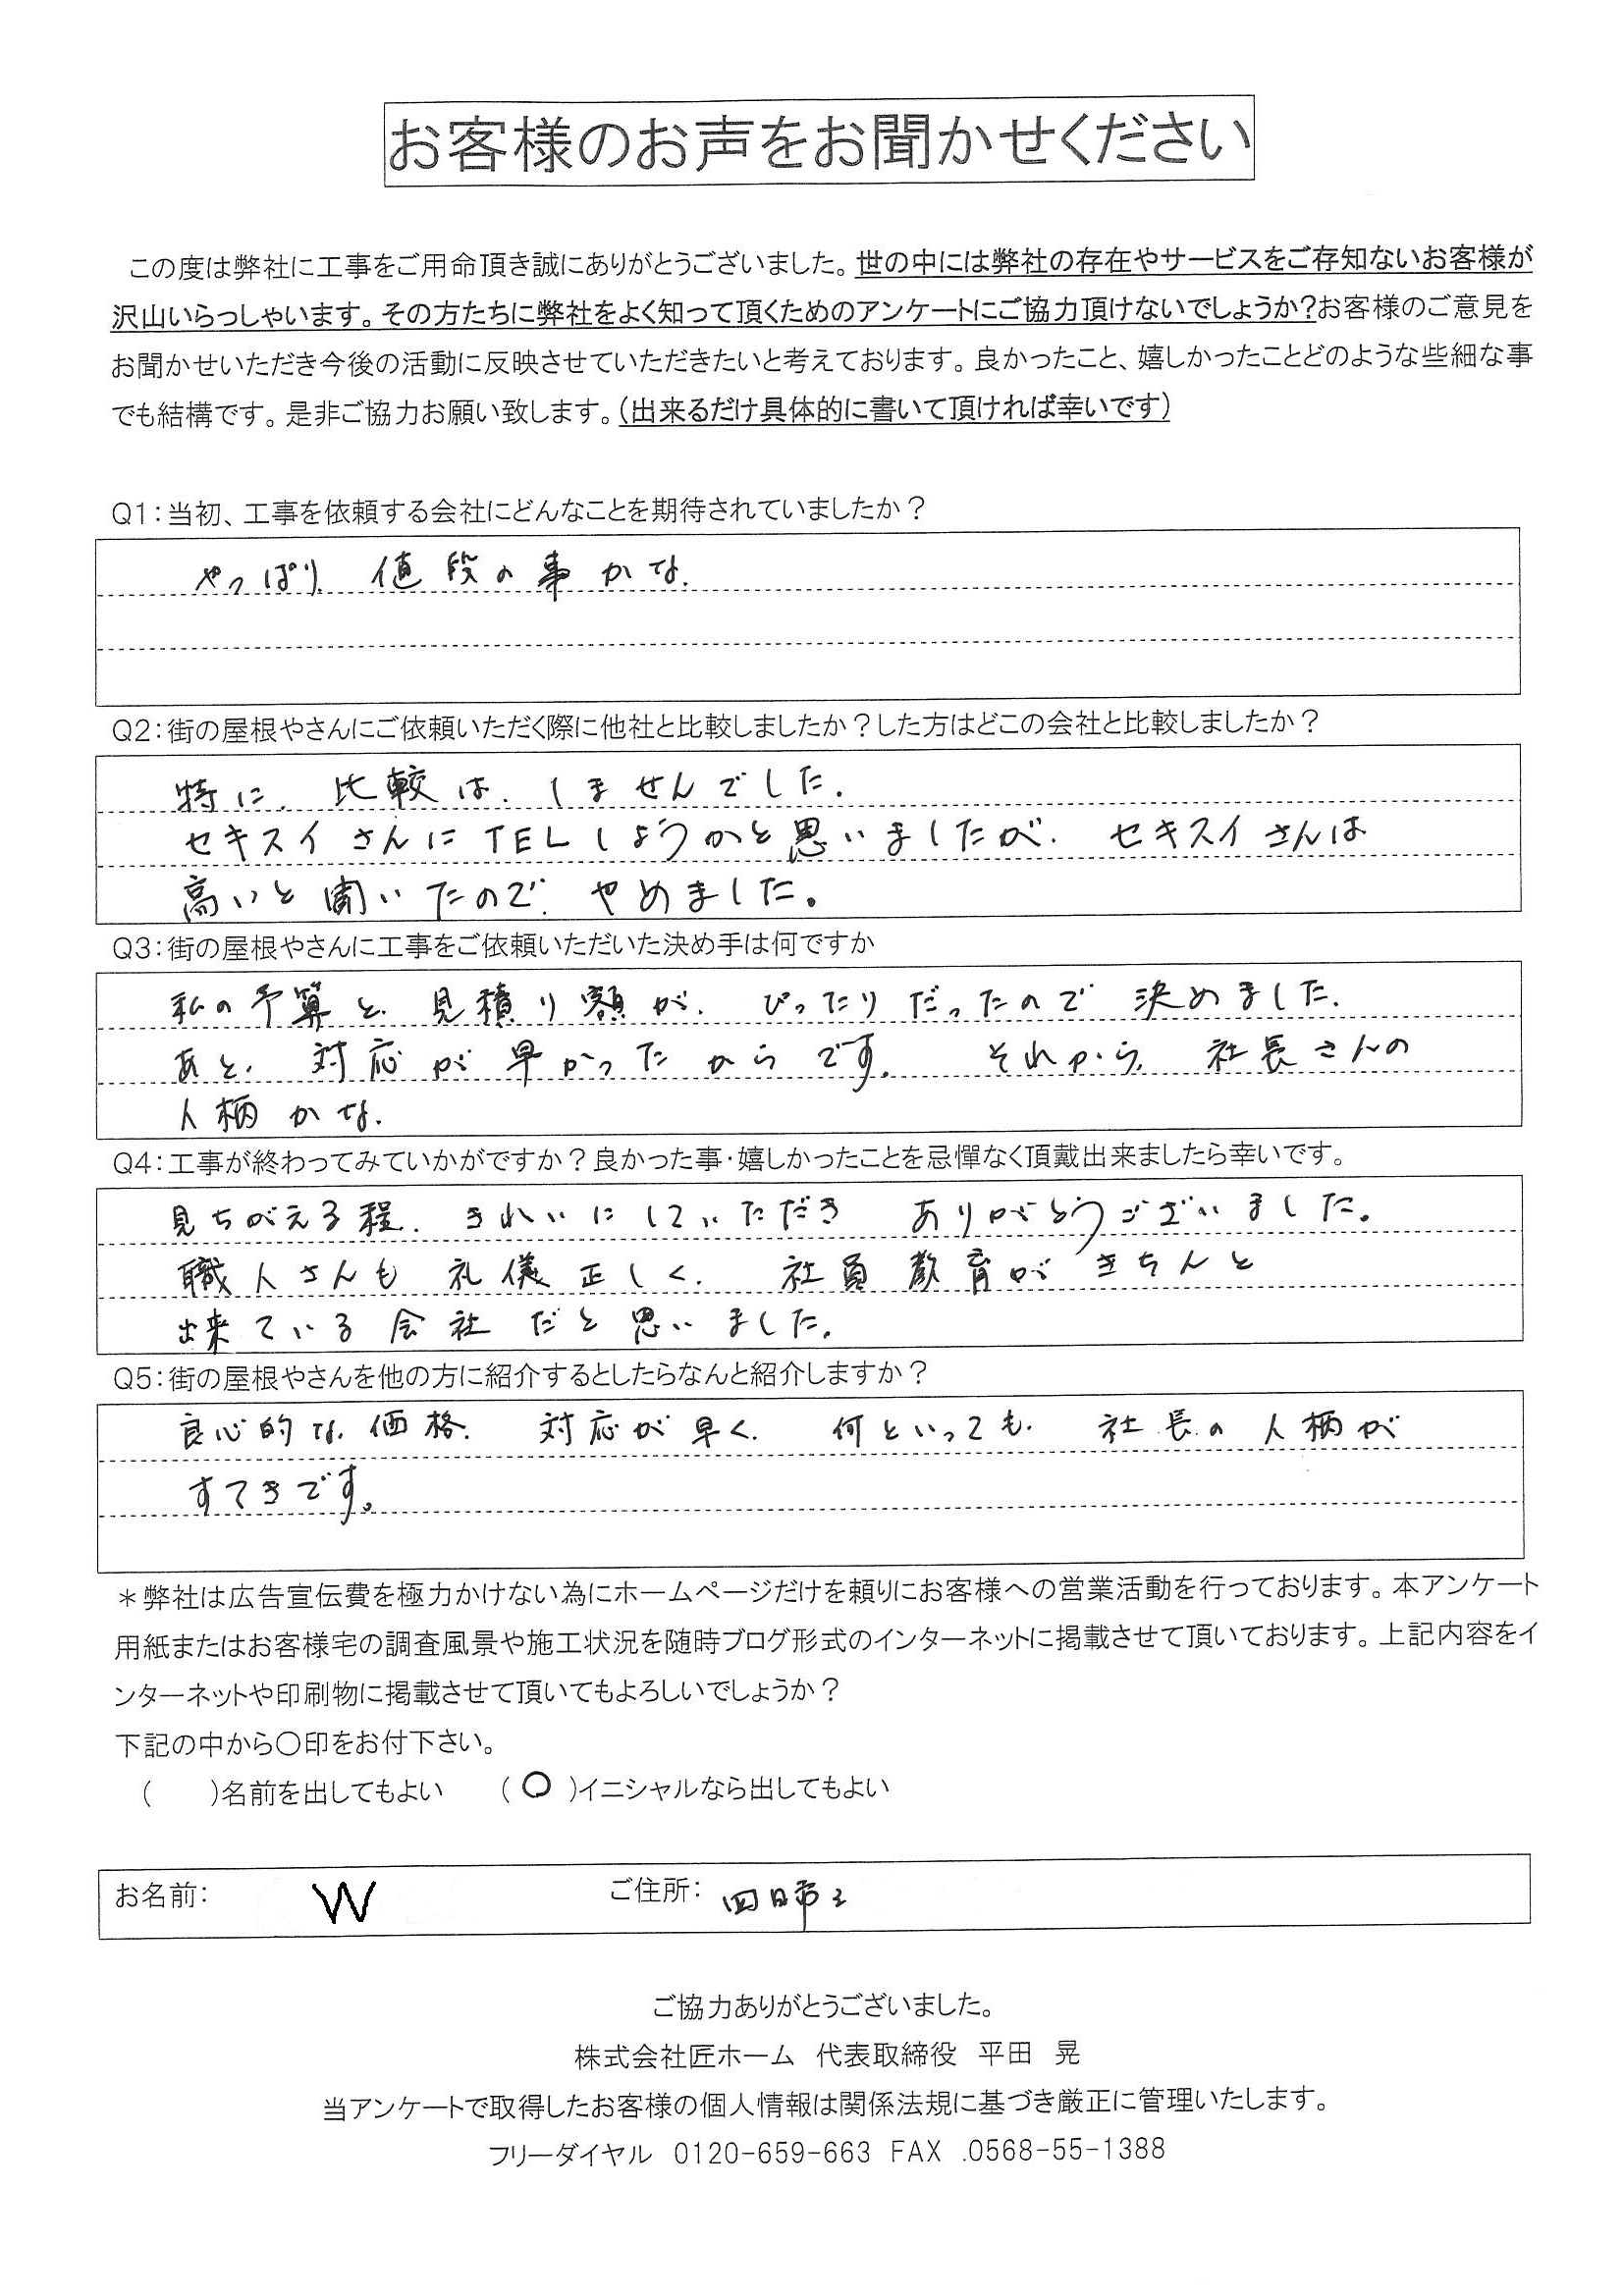 お客様のお声をお聞かせください
この度は弊社に工事をご用命頂き誠にありがとうございました。世の中には弊社の存在やサービスをご存知ないお客様が
沢山いらっしゃいます。その方たちに弊社をよく知って頂くためのアンケートにご協力頂けないでしょうか?お客様のご意見を
お聞かせいただき今後の活動に反映させていただきたいと考えております。良かったこと、嬉しかったことどのような些細な事
でも結構です。是非ご協力お願い致します。(出来るだけ具体的に書いて頂ければ幸いです)
Q1:当初、工事を依頼する会社にどんなことを期待されていましたか?
やっぱり、値段の事かな.
Q2:街の屋根やさんにご依頼いただく際に他社と比較しましたか?した方はどこの会社と比較しましたか?
特に、比較は、しませんでした.
セキスイさんにTELしようかと思いましたが、セキスイさんは
高いと聞いたので、やめました。
Q3:街の屋根やさんに工事をご依頼いただいた決め手は何ですか
私の予算と、見積り額が、ぴったりだったので決めました.
あと、対応が早かったからです。それから、社長さんの
人柄かな.
Q4:工事が終わってみていかがですか?良かった事・嬉しかったことを忌憚なく頂戴出来ましたら幸いです。
見ちがえる程、きれいにしていただきありがとうございました。
職人さんも礼儀正しく、社員教育がきちんと
出来ている会社だと思いました。
Q5:街の屋根やさんを他の方に紹介するとしたらなんと紹介しますか?
良心的な、価格、対応が早く、何といっても、社長の人柄が
すてきです。
*弊社は広告宣伝費を極力かけない為にホームページだけを頼りにお客様への営業活動を行っております。本アンケート
用紙またはお客様宅の調査風景や施工状況を随時ブログ形式のインターネットに掲載させて頂いております。上記内容をイ
ンターネットや印刷物に掲載させて頂いてもよろしいでしょうか?
下記の中から〇印をお付下さい。
(　　)名前を出してもよい　(〇)イニシャルなら出してもよい
お名前: W ご住所: 四日市
ご協力ありがとうございました。
株式会社匠ホーム 代表取締役 平田 晃
当アンケートで取得したお客様の個人情報は関係法規に基づき厳正に管理いたします。
フリーダイヤル 0120-659-663 FAX .0568-55-1388